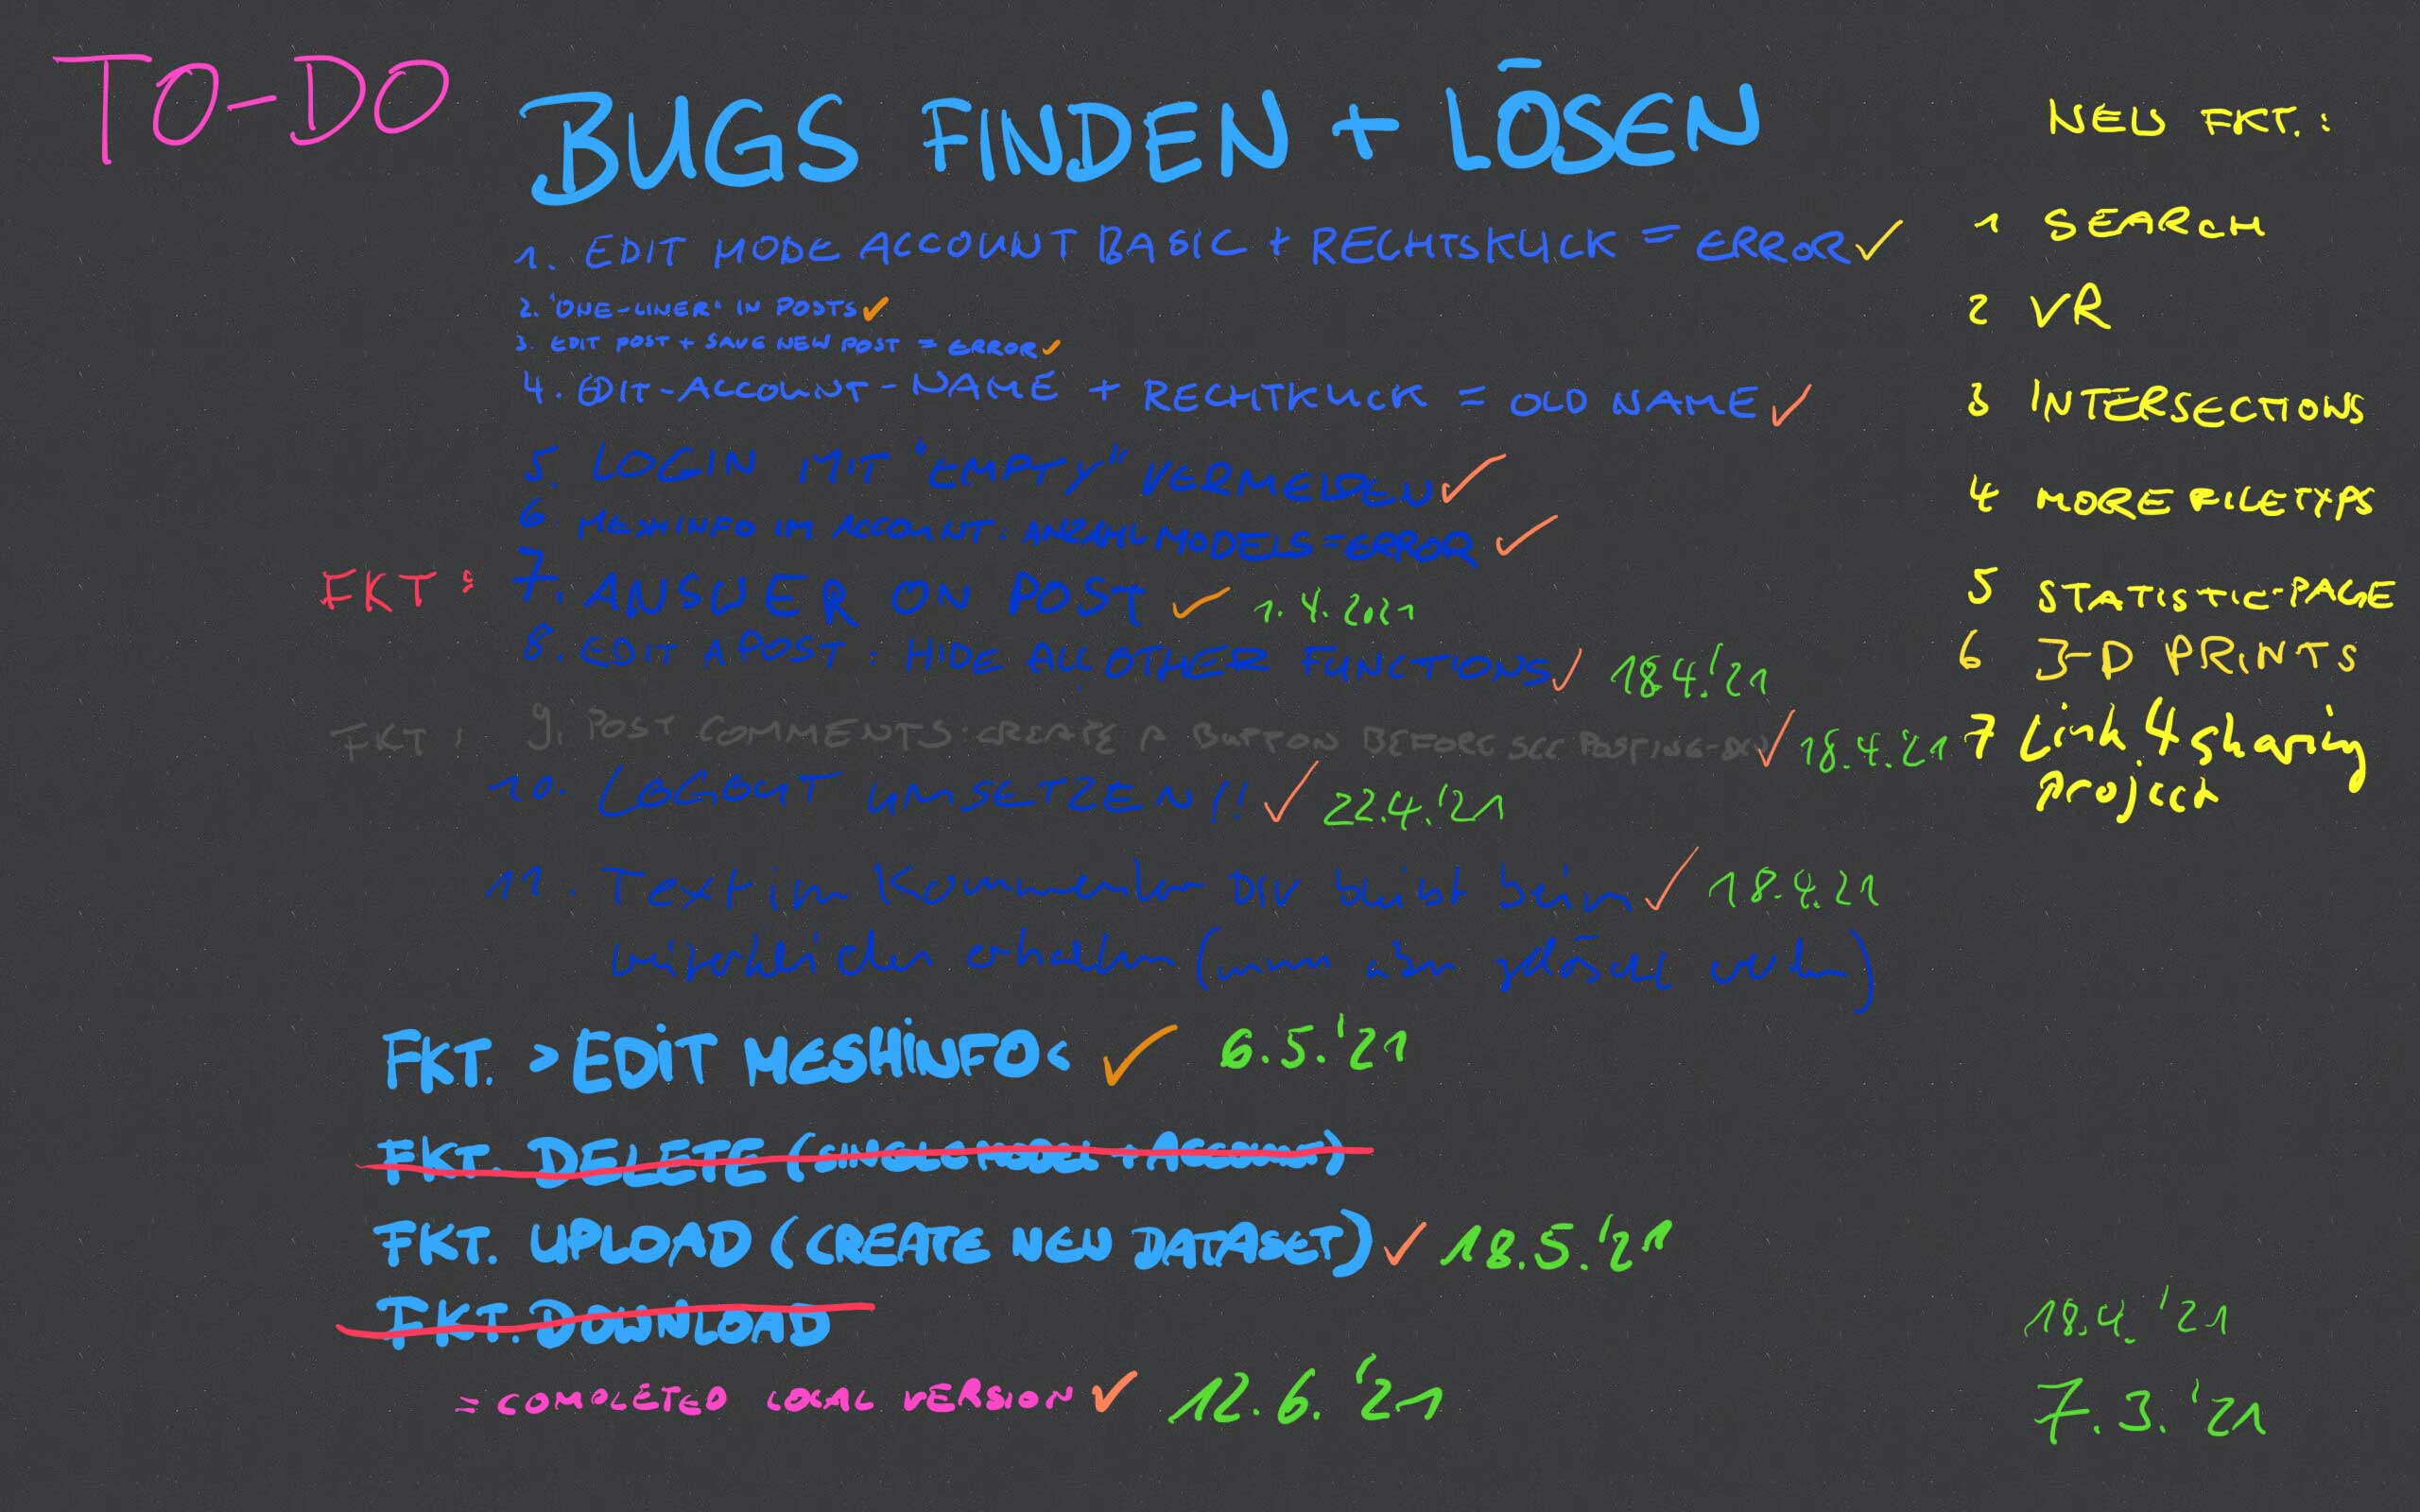 TO-DO
BUGS FINDEN + LÖSEN
1. EDIT MODE ACCOUNT BASIC + RECHTSKLICK = ERROR ✓
2. "ONE-LINER" IN POSTS ✓
3. EDIT POST + SAVE NEW POST = ERROR ✓
4. EDIT-ACCOUNT-NAME + RECHTKLICK = OLD NAME ✓
5. LOGIN MIT "EMPTY" VERMEIDEN ✓
6. MESHINFO IM ACCOUNT: ANZAHL MODELS = ERROR ✓
FKT: 7. ANSWER ON POST ✓ 1.4.2021
8. EDIT A POST: HIDE ALL OTHER FUNCTIONS ✓ 18.4.'21
FKT: 9. POST COMMENTS: CREATE A BUTTON BEFORE SEE POSTING- ✓ 18.4.'21
10. LOGOUT UMSETZEN!! ✓ 22.4.'21
11. Text im Kommentar DIV bleibt beim ✓ 18.4.21
erhalten (muss aber gelöscht werden)
FKT. >EDIT MESHINFO< ✓ 6.5.'21
FKT. DELETE (SINGLE MODEL + ACCOUNT)
FKT. UPLOAD (CREATE NEW DATASET) ✓ 18.5.'21
FKT. DOWNLOAD
= COMPLETED LOCAL VERSION ✓ 12.6.'21
NEW FKT.:
1 SEARCH
2 VR
3 INTERSECTIONS
4 MORE FILETYPS
5 STATISTIC-PAGE
6 3-D PRINTS
7 Link 4 sharing
Project
18.4.'21
7.3.'21